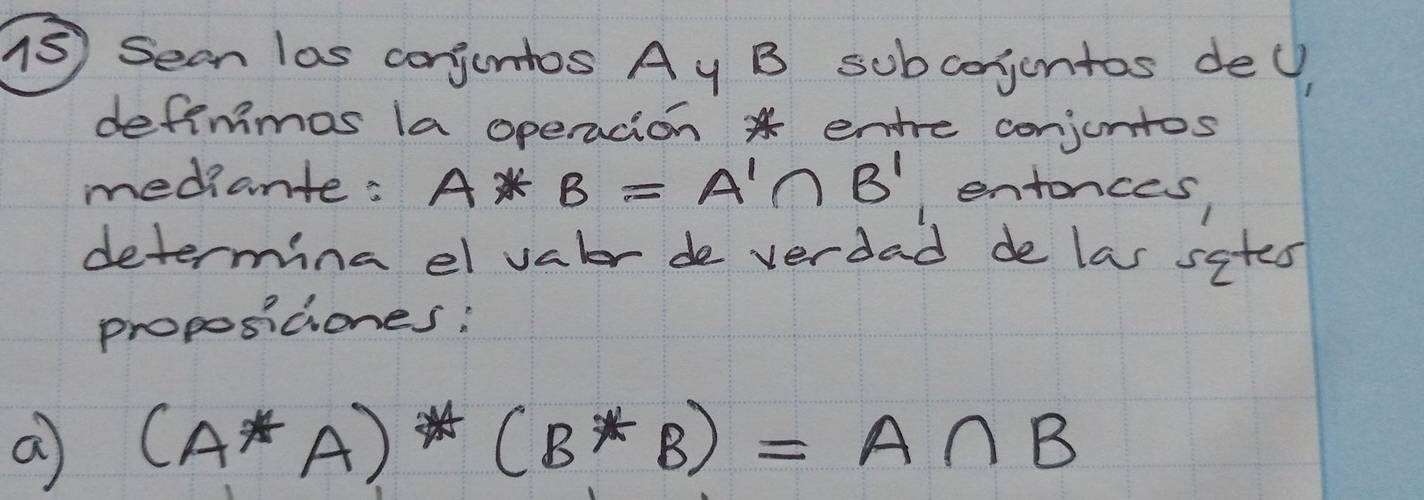 15) Sean los conjuntos A y B subconjuntos de U,
definimos la operación * entre conjuntos
mediante: A * B = A' ∩ B', entonces,
determina el valor de verdad de las sgtes
proposiciones:
a) (A * A) * (B * B) = A ∩ B